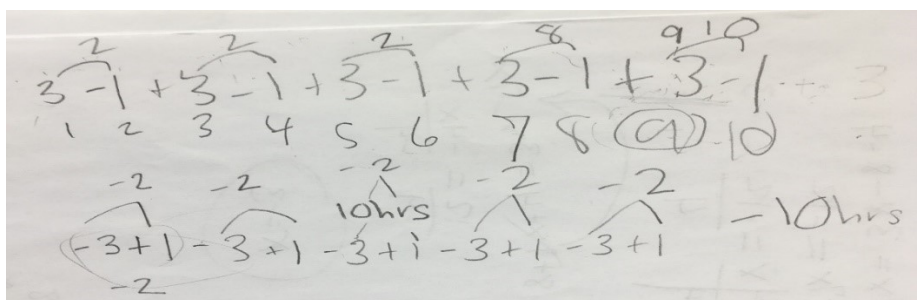 2 2 2 8 9 10
3-1 + 3-1 + 3-1 + 3-1 + 3-1
1 2 3 4 5 6 7 8 9 10
-2 -2 -2 -2 -2
10hrs
-3+1 -3+1 -3+1 -3+1 -3+1 -10hrs
-2